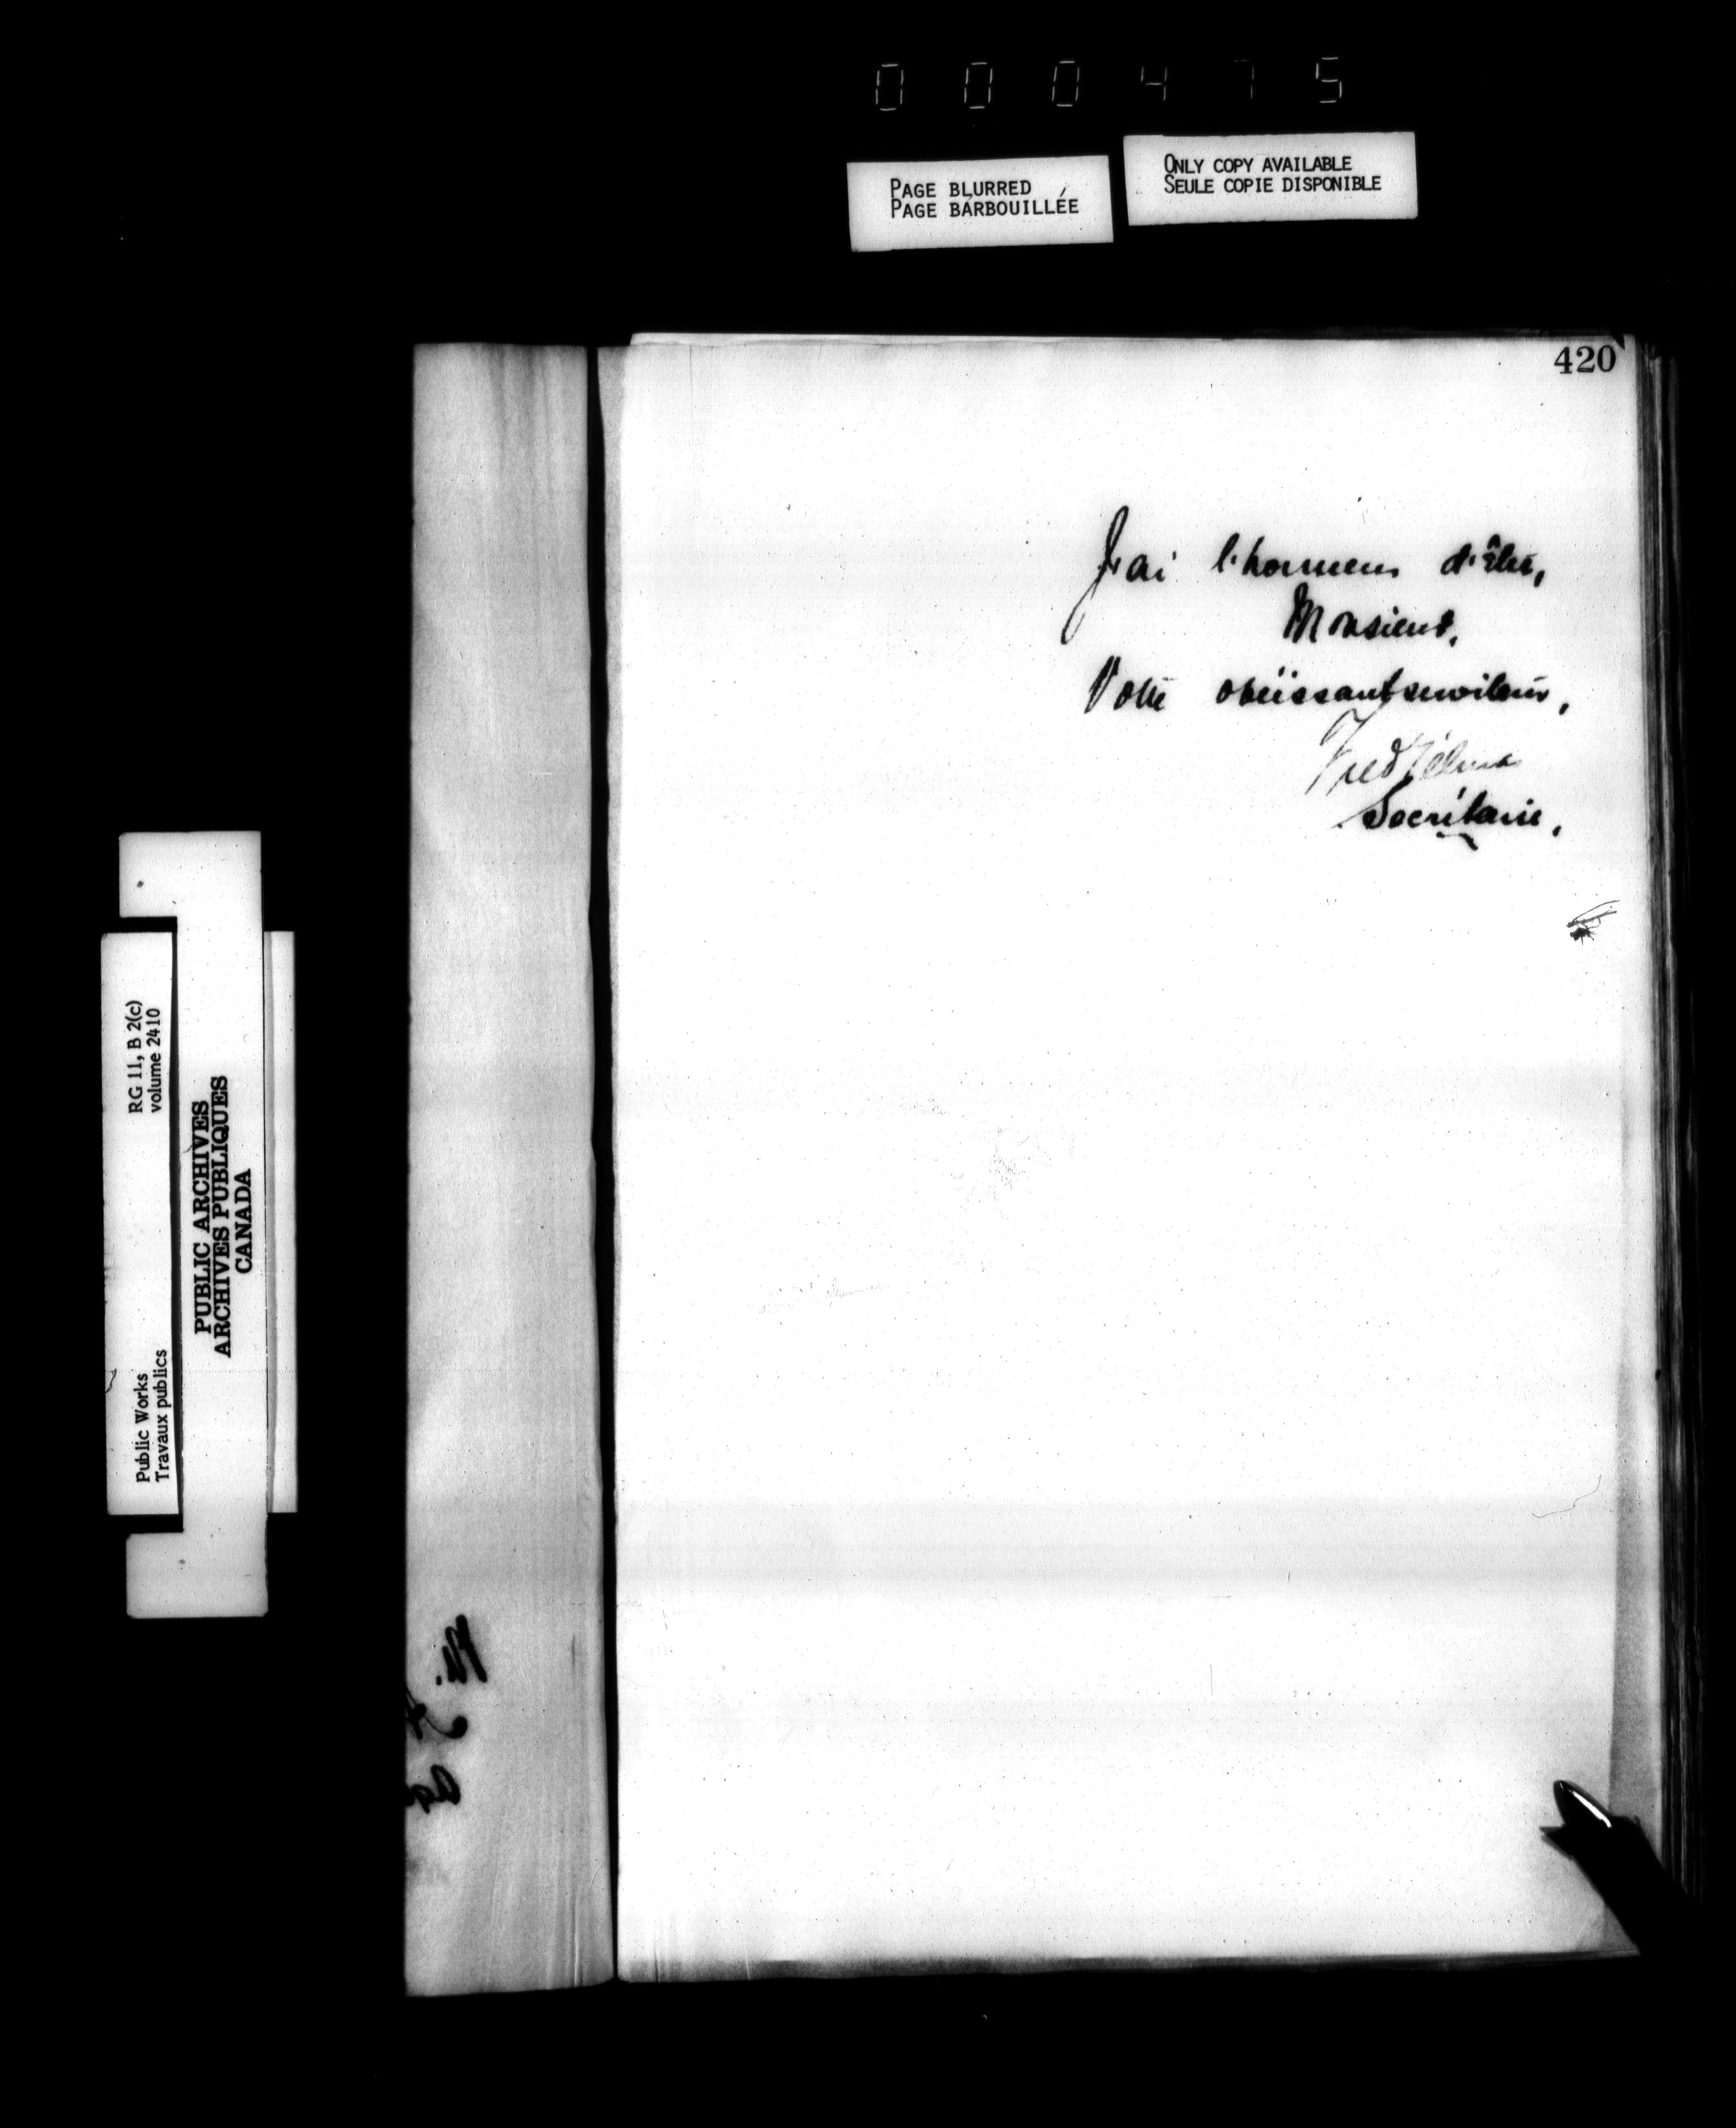 000475
PAGE BLURRED
PAGE BARBOUILLÉE
ONLY COPY AVAILABLE
SEULE COPIE DISPONIBLE
420
J'ai l'honneur d'être,
Monsieur,
Votre obéissant serviteur,
Fred Gélinas
Secrétaire.
RG 11, B 2(c)
volume 2410
Public Works
Travaux publics
PUBLIC ARCHIVES
ARCHIVES PUBLIQUES
CANADA